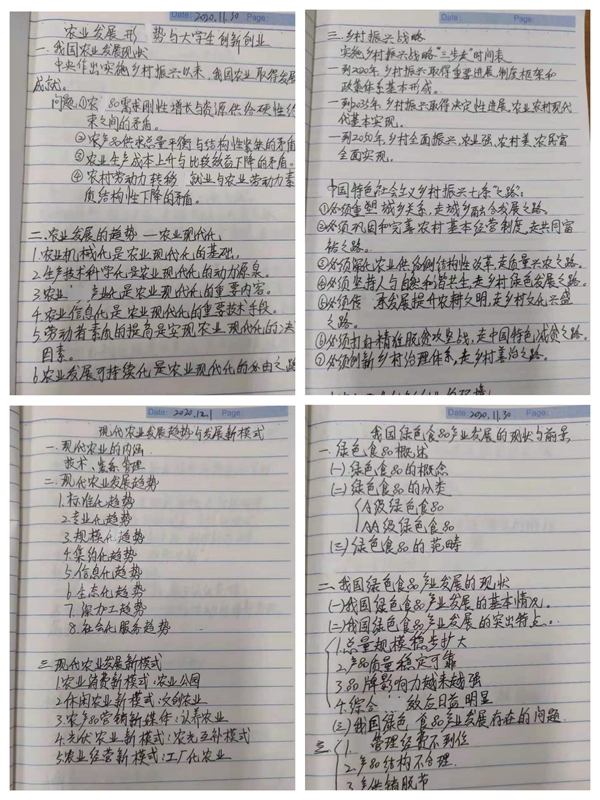 Date: 2020.11.30 Page:
农业发展形 势与大学生创新创业
一.我国农业发展现状
中央作出实施乡村振兴以来,我国农业取得发展
成就。
问题:①农 品需求刚性增长与资源供给硬性约
束之间的矛盾。
②农产品供求总量平衡与结构性紧缺的矛盾
③农业生产成本上升与比较效益下降的矛盾。
④农村劳动力转移 就业与农业劳动力素
质结构性下降的矛盾。
二.农业发展的趋势—农业现代化
1.农业机械化是农业现代化的基础。
2.生产技术科学化是农业现代化的动力源泉。
3.农业 产业化是农业现代化的重要内容。
4.农业信息化是农业现代化的重要技术手段。
5.劳动者素质的提高是实现农业现代化的决
因素。
6.农业发展可持续化是农业现代化的必由之路
三.乡村振兴战略
实施乡村振兴战略"三步走"时间表
—到2020年,乡村振兴取得重要进展,制度框架和
政策体系基本形成。
—到2035年,乡村振兴取得决定性进展,农业农村现代
化基本实现。
—到2050年,乡村全面振兴,农业强、农村美、农民富
全面实现。
中国特色社会主义乡村振兴七条之路:
①必须重塑城乡关系,走城乡融合发展之路
②必须巩固和完善农村基本经营制度,走共同富
裕之路。
③必须深化农业供给侧结构性改革,走质量兴农之路。
④必须坚持人与自然和谐共生,走乡村绿色发展之路。
⑤必须传 承发展提升农耕文明,走乡村文化兴盛
之路。
⑥必须打好精准脱贫攻坚战,走中国特色减贫之路。
⑦必须创新乡村治理体系,走乡村善治之路。
Date: 2020.12.1 Page:
现代农业发展趋势与发展新模式
一.现代农业的内涵
技术、装备、管理
二.现代农业发展趋势
1.标准化趋势
2.专业化趋势
3.规模化趋势
4.集约化趋势
5.信息化趋势
6.生态化趋势
7.深加工趋势
8.社会化服务趋势
三.现代农业发展新模式
1.农业消费新模式:农业公园
2.休闲农业新模式:文创农业
3.农产品营销新媒体:认养农业
4.光伏农业新模式:农光互补模式
5.农业经营新模式:工厂化农业
Date: 2020.11.30 Page:
我国绿色食品产业发展的现状与前景
一.绿色食品概述
(一)绿色食品的概念
(二)绿色食品的分类
A级绿色食品
AA级绿色食品
(三)绿色食品的范畴
二.我国绿色食品产业发展的现状
(一)我国绿色食品产业发展的基本情况。
(二)我国绿色食品产业发展的突出特点
1.总量规模稳步扩大
2.产品质量稳定可靠
3.品牌影响力越来越强
4.综合 效应日益明显
(三)我国绿色 食品产业发展存在的问题.
1. 管理经费不到位
2.产品结构不合理
3.产供销脱节